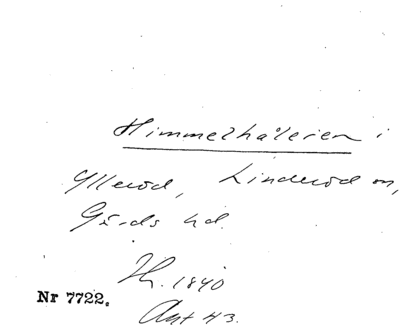 Himmelhåleien i
Ylleröd, Linderöd sn,
Gärds hd.
Th. 1840
Nr 7722.
Avt 43.